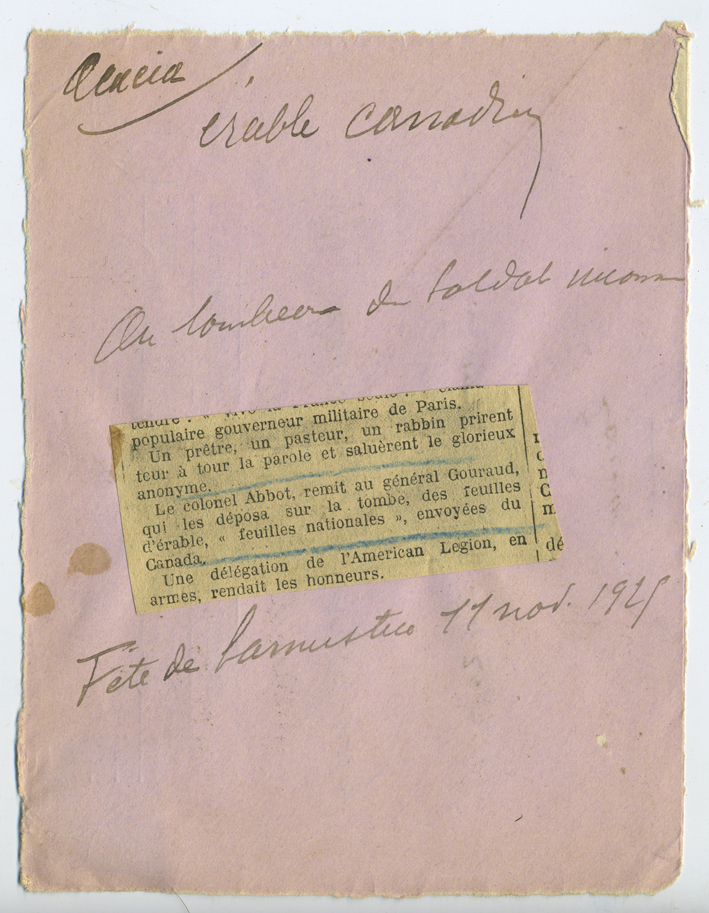 Acacia
érable canadien
Au tombeau du Soldat inconnu
tendre : « Vive la France seule ! »
populaire gouverneur militaire de Paris.
Un prêtre, un pasteur, un rabbin prirent
tour à tour la parole et saluèrent le glorieux
anonyme.
Le colonel Abbot, remit au général Gouraud,
qui les déposa sur la tombe, des feuilles
d'érable, « feuilles nationales », envoyées du
Canada.
Une délégation de l'American Legion, en
armes, rendait les honneurs.
dé
Fête de l'armistice 11 nov. 1925